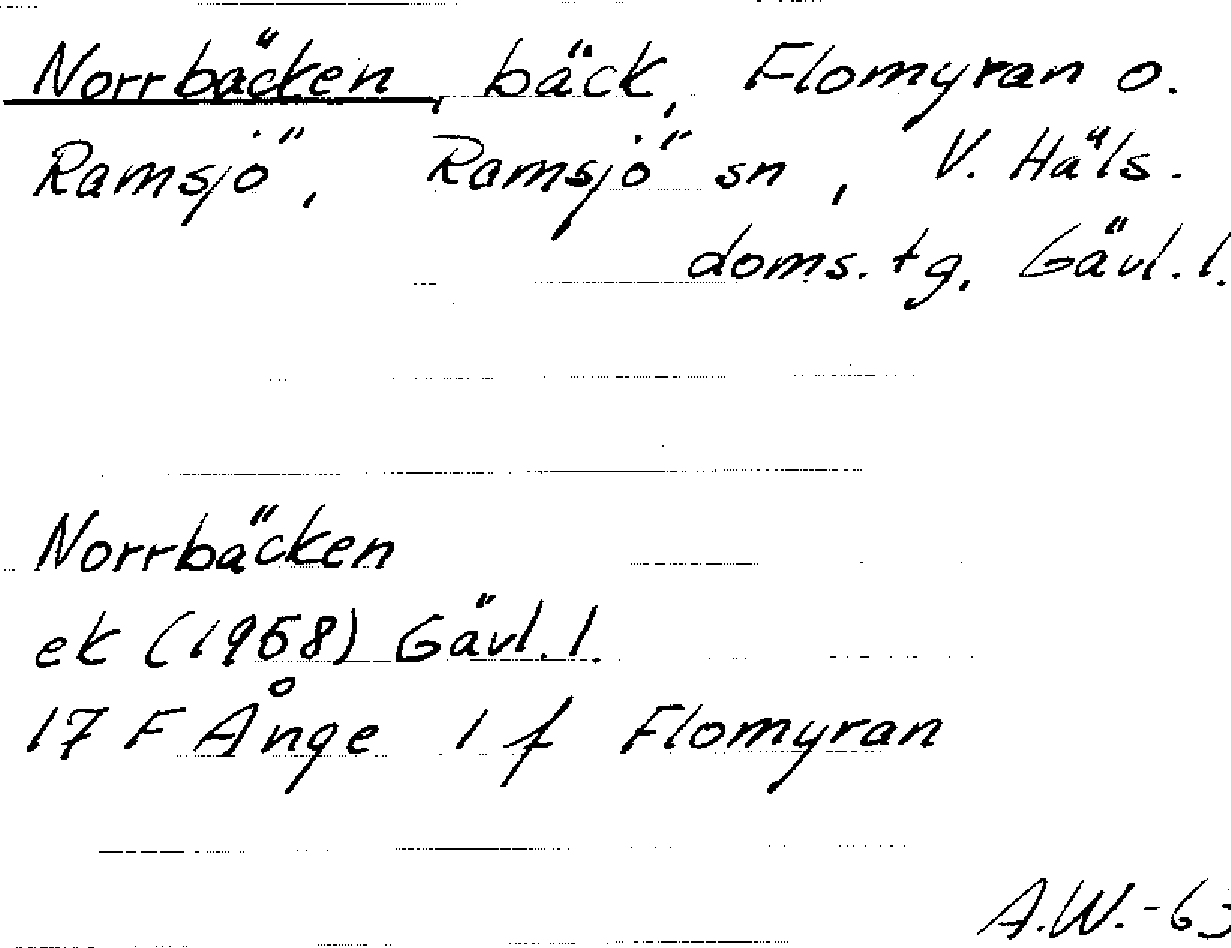 Norrbäcken, bäck, Flomyran o.
Ramsjö, Ramsjö sn, V. Häls.
doms. tg, Gävl. l.
Norrbäcken
ek (1958) Gävl. l.
17 F Ånge 1 f Flomyran
A.W.-63